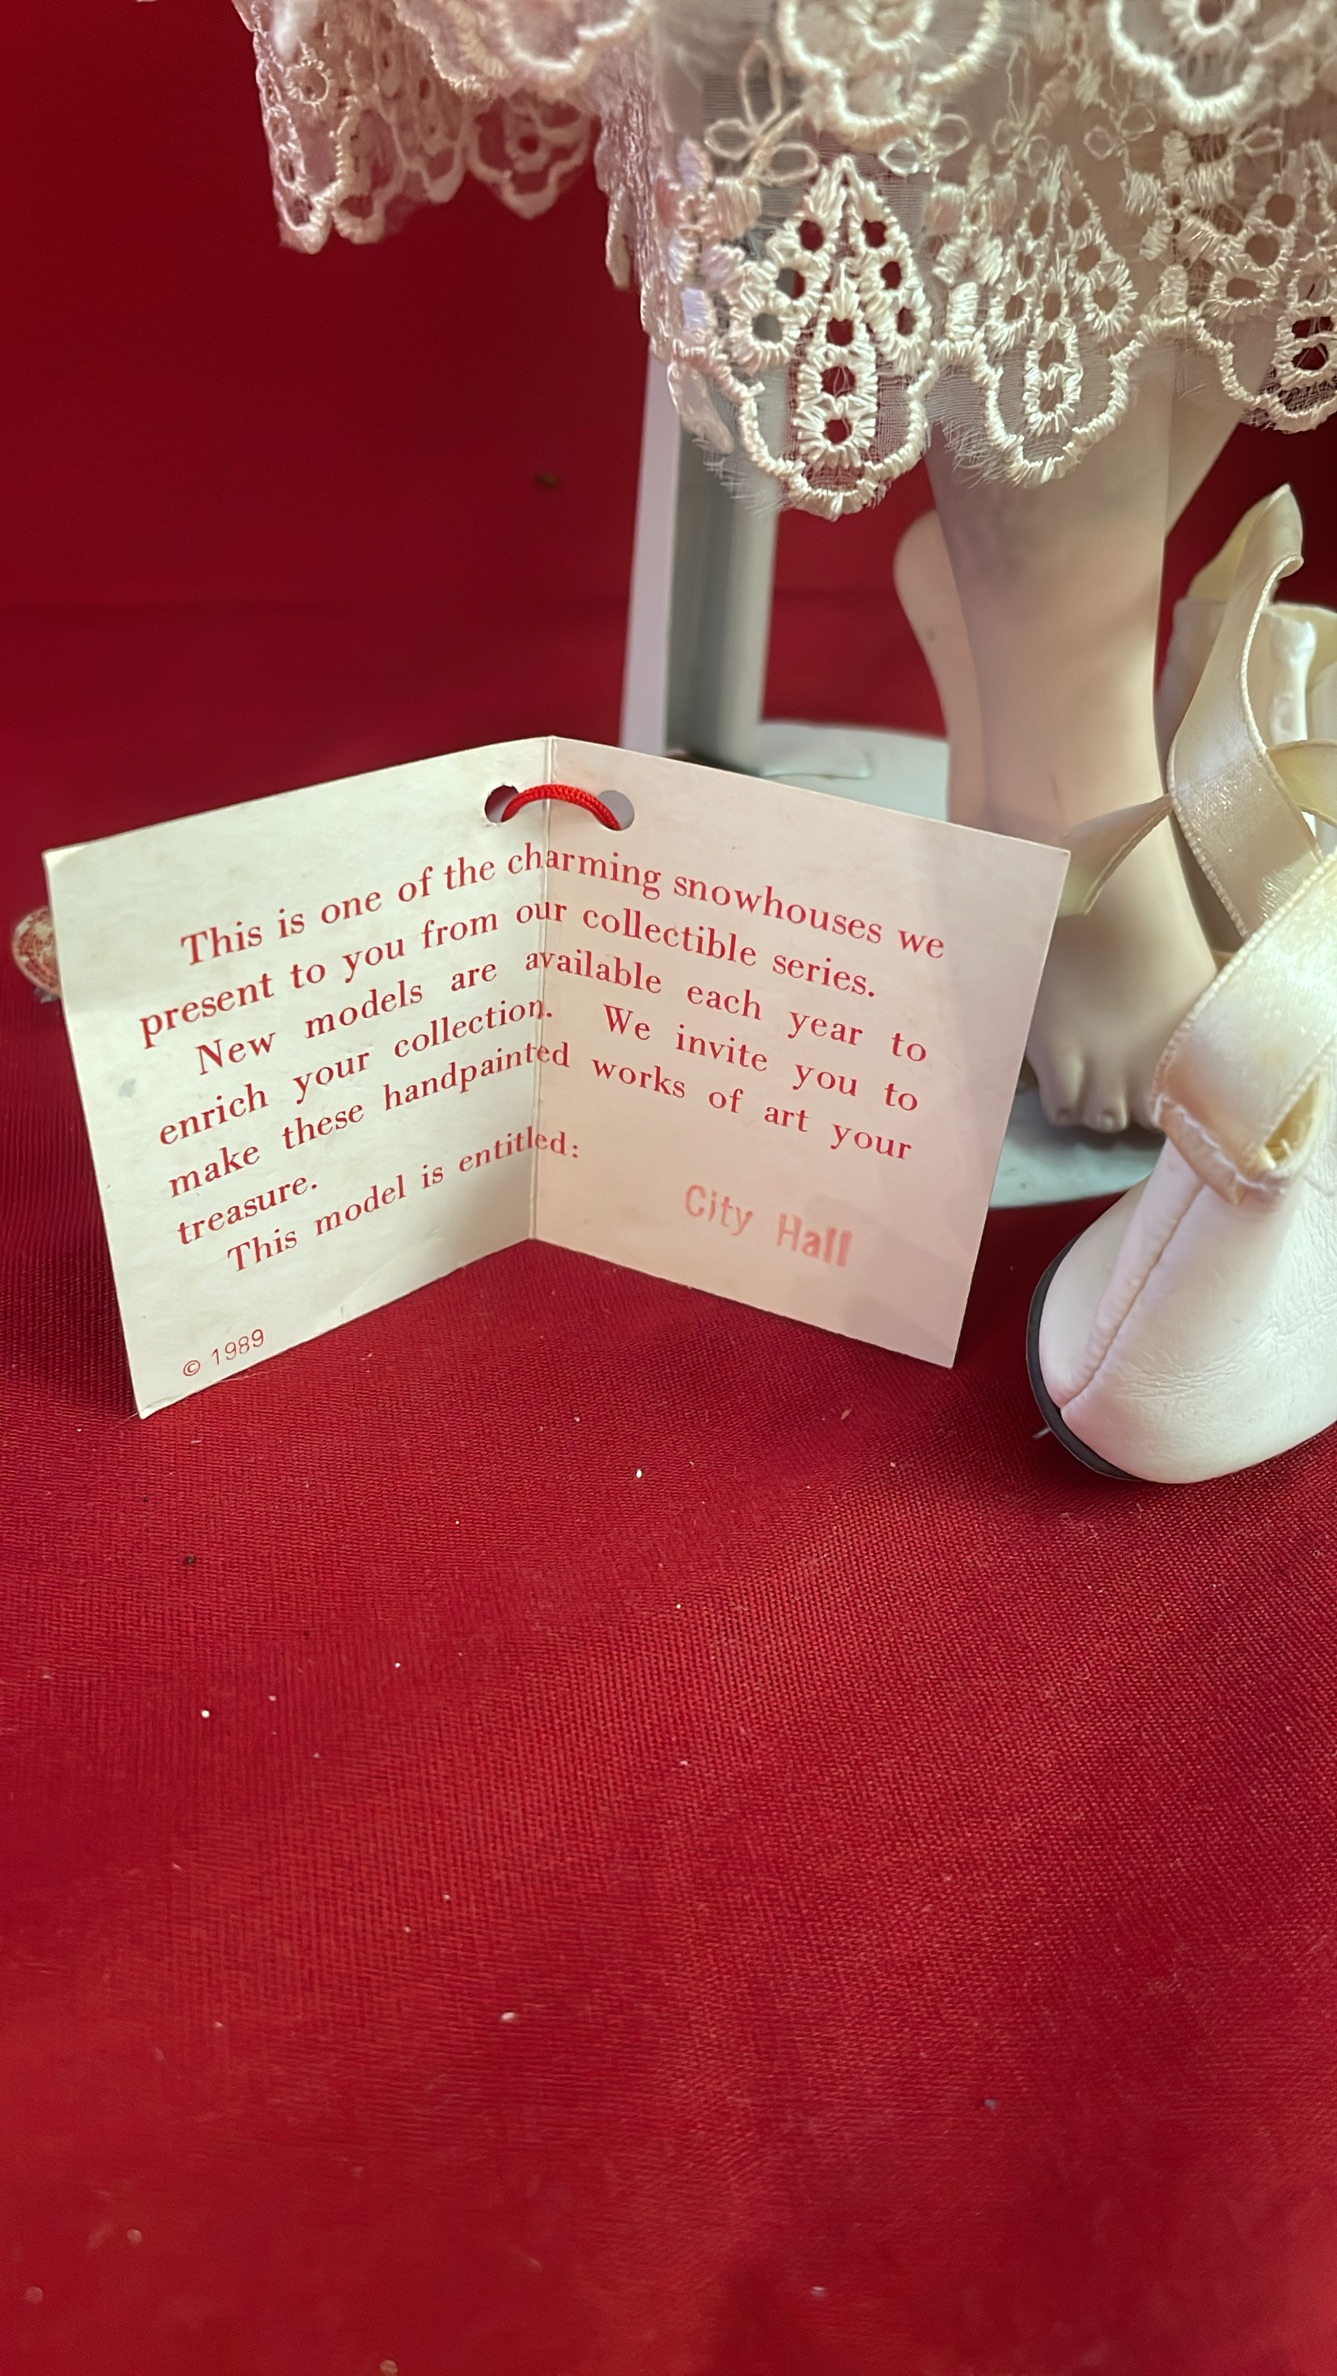 This is one of the charming snowhouses we
present to you from our collectible series.
New models are available each year to
enrich your collection. We invite you to
make these handpainted works of art your
treasure.
This model is entitled:
City Hall
© 1989